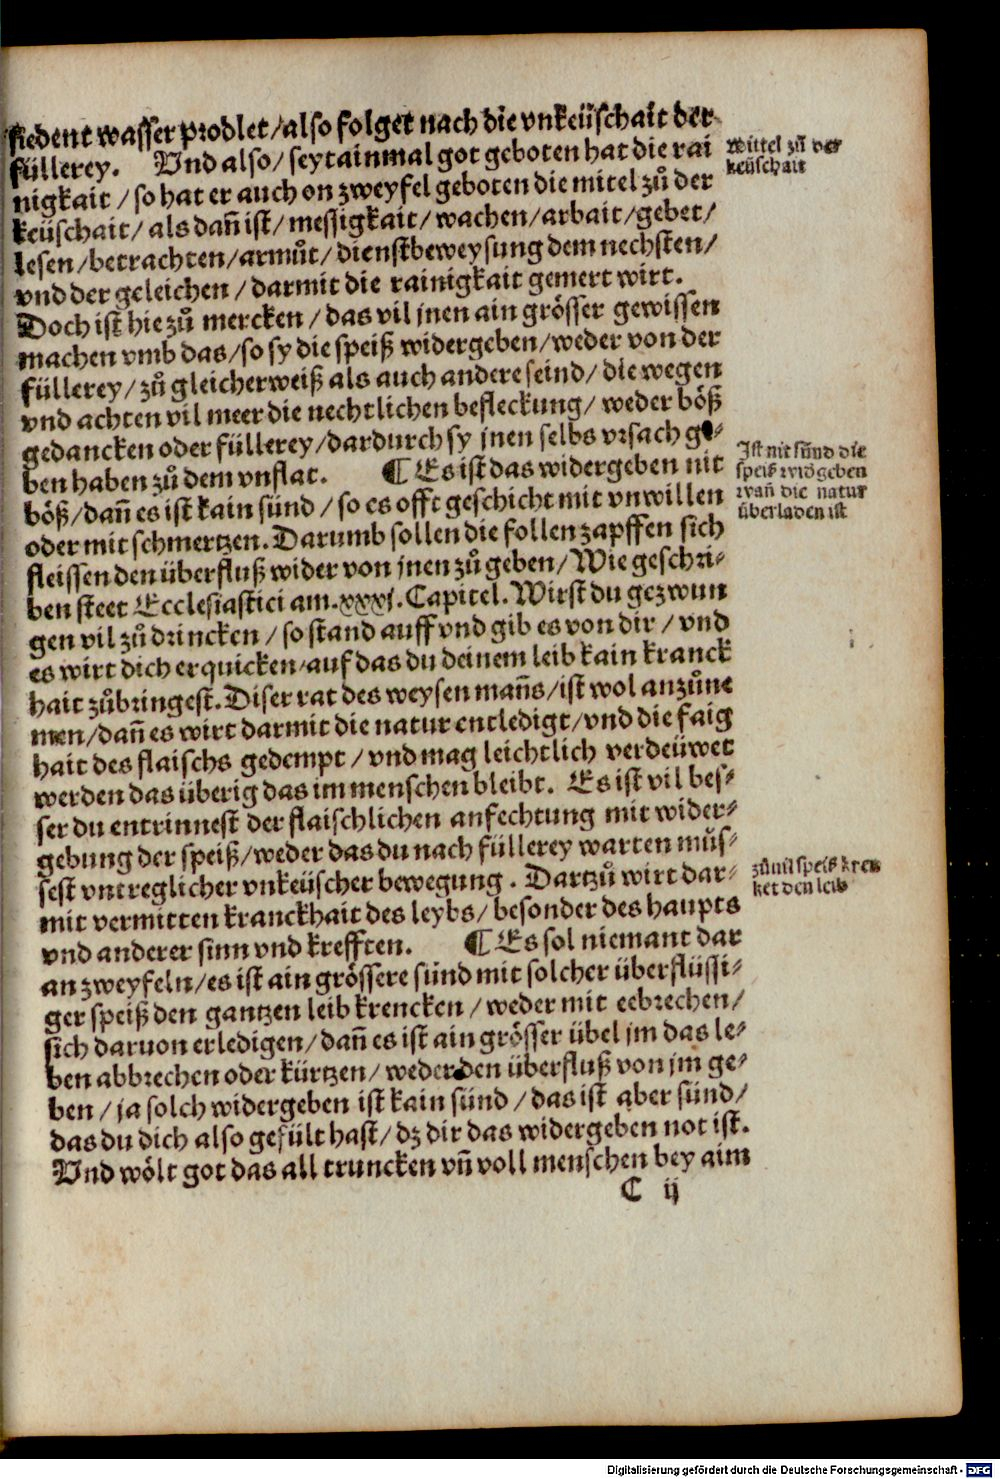 siedent wasser prodlet/also folget nach die vnkeüschait der
füllerey. Vnd also/seytainmal got geboten hat die rai
nigkait/so hat er auch on zweyfel geboten die mitel zů der
keüschait/als dañ ist/messigkait/wachen/arbait/gebet/
lesen/betrachten/armůt/dienstbeweysung dem nechsten/
vnd der geleichen/darmit die rainigkait gemert wirt.
Doch ist hie zů mercken/das vil jnen ain grösser gewissen
machen vmb das/so sy die speiß widergeben/weder von der
füllerey/zů gleicherweiß als auch andere seind/die wegen
vnd achten vil meer die nechtlichen befleckung/weder böß
gedancken oder füllerey/dardurch sy jnen selbs vrsach ge-
ben haben zů dem vnflat. ¶ Es ist das widergeben nit
böß/dañ es ist kain sünd/so es offt geschicht mit vnwillen
oder mit schmertzen. Darumb sollen die follen zapffen sich
fleissen den überfluß wider von jnen zů geben/Wie geschri-
ben steet Ecclesiastici am .xxxj. Capitel. Wirst du gezwun
gen vil zů drincken/so stand auff vnd gib es von dir/vnd
es wirt dich erquicken/auf das du deinem leib kain kranck
hait zůbringest. Diser rat des weysen mañs/ist wol anzůne
men/dañ es wirt darmit die natur entledigt/vnd die faig
hait des flaischs gedempt/vnd mag leichtlich verdeüwet
werden das überig das im menschen bleibt. Es ist vil bes-
ser du entrinnest der flaischlichen anfechtung mit wider-
gebung der speiß/weder das du nach füllerey warten můs-
sest vntreglicher vnkeüscher bewegung. Dartzů wirt dar-
mit vermitten kranckhait des leybs/besonder des haupts
vnd anderer sinn vnd krefften. ¶ Es sol niemant dar
an zweyfeln/es ist ain grössere sünd mit solcher überflüssi-
ger speiß den gantzen leib krencken/weder mit eebrechen/
sich daruon erledigen/dañ es ist ain grösser übel jm das le-
ben abbrechen oder kürtzen/weder den überfluß von jm ge-
ben/ja solch widergeben ist kain sünd/das ist aber sünd/
das du dich also gefült hast/dz dir das widergeben not ist.
Vnd wölt got das all truncken vñ voll menschen bey aim
C ij
Mittel zů der
keüschait
Ist nit sünd die
speis widgeben
wañ die natur
überladen ist
zůuil speis kren
ket den leib
Digitalisierung gefördert durch die Deutsche Forschungsgemeinschaft - DFG